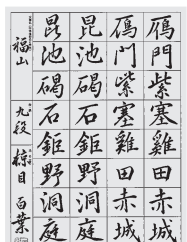 雁門紫塞雞田赤城
鴈門紫塞雞田赤城
昆池碣石鉅野洞庭
昆池碣石鉅野洞庭
福山 九段 椋目 白葉